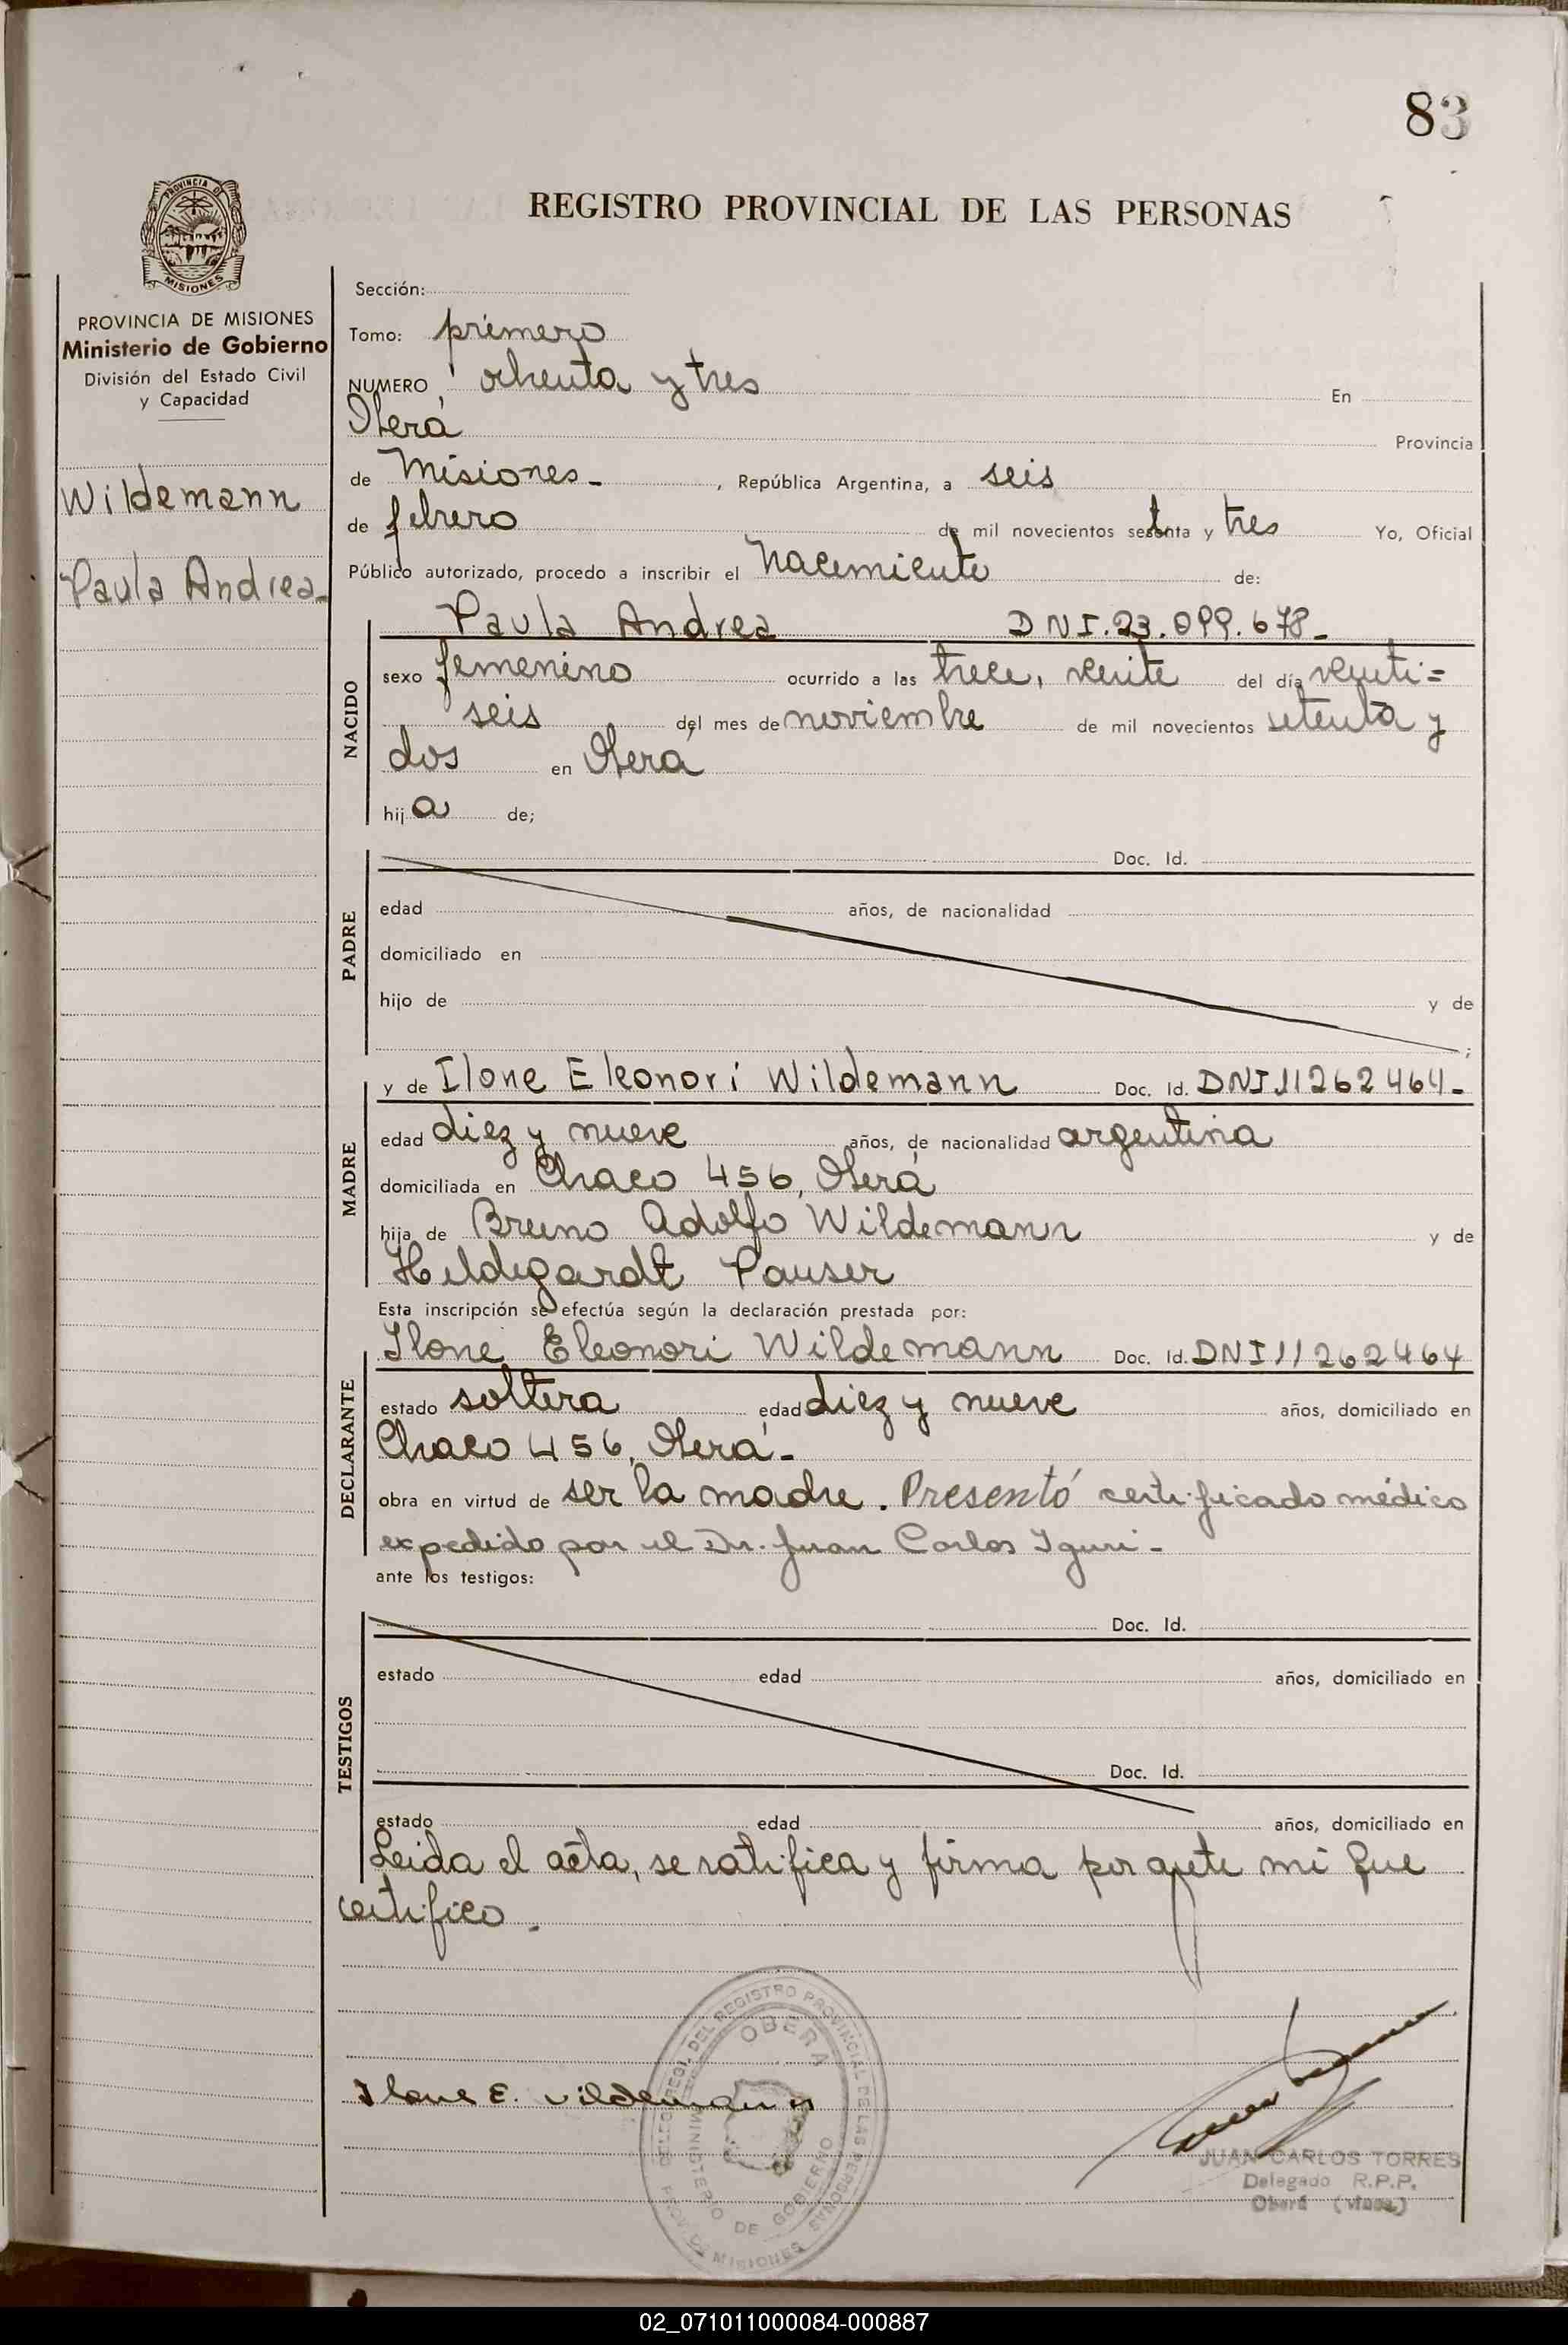 83
REGISTRO PROVINCIAL DE LAS PERSONAS
PROVINCIA DE
MISIONES
PROVINCIA DE MISIONES
Ministerio de Gobierno
División del Estado Civil
y Capacidad
Wildemann
Paula Andrea-
Sección:
Tomo: primero
NUMERO ochenta y tres En
Oberá Provincia
de Misiones-, República Argentina, a seis
de febrero de mil novecientos setenta y tres Yo, Oficial
Público autorizado, procedo a inscribir el nacimiento de:
NACIDO
Paula Andrea DNI.23.099.678-
sexo femenino ocurrido a las trece, veinte del día veinti=
seis del mes de noviembre de mil novecientos setenta y
dos en Oberá
hija de;
PADRE
Doc. Id.
edad años, de nacionalidad
domiciliado en
hijo de y de
;
MADRE
y de Ilone Eleonori Wildemann Doc. Id. DNI 11262464-
edad diez y nueve años, de nacionalidad argentina
domiciliada en Chaco 456, Oberá
hija de Bruno Adolfo Wildemann y de
Hildegardt Pauser
Esta inscripción se efectúa según la declaración prestada por:
DECLARANTE
Ilone Eleonori Wildemann Doc. Id. DNI 11262464
estado soltera edad diez y nueve años, domiciliado en
Chaco 456, Oberá-
obra en virtud de ser la madre. Presentó certificado médico
expedido por el Dr. Juan Carlos Iguri-
ante los testigos:
TESTIGOS
Doc. Id.
estado edad años, domiciliado en
Doc. Id.
estado edad años, domiciliado en
Leida el acta, se ratifica y firma por ante mi que
certifico.
Ilone E. Wildemann
DELEG. REGL. DEL REGISTRO PROVINCIAL DE LAS PERSONAS
OBERA
MINISTERIO DE GOBIERNO
PROV. DE MISIONES
JUAN CARLOS TORRES
Delegado R.P.P.
Oberá
02_071011000084-000887